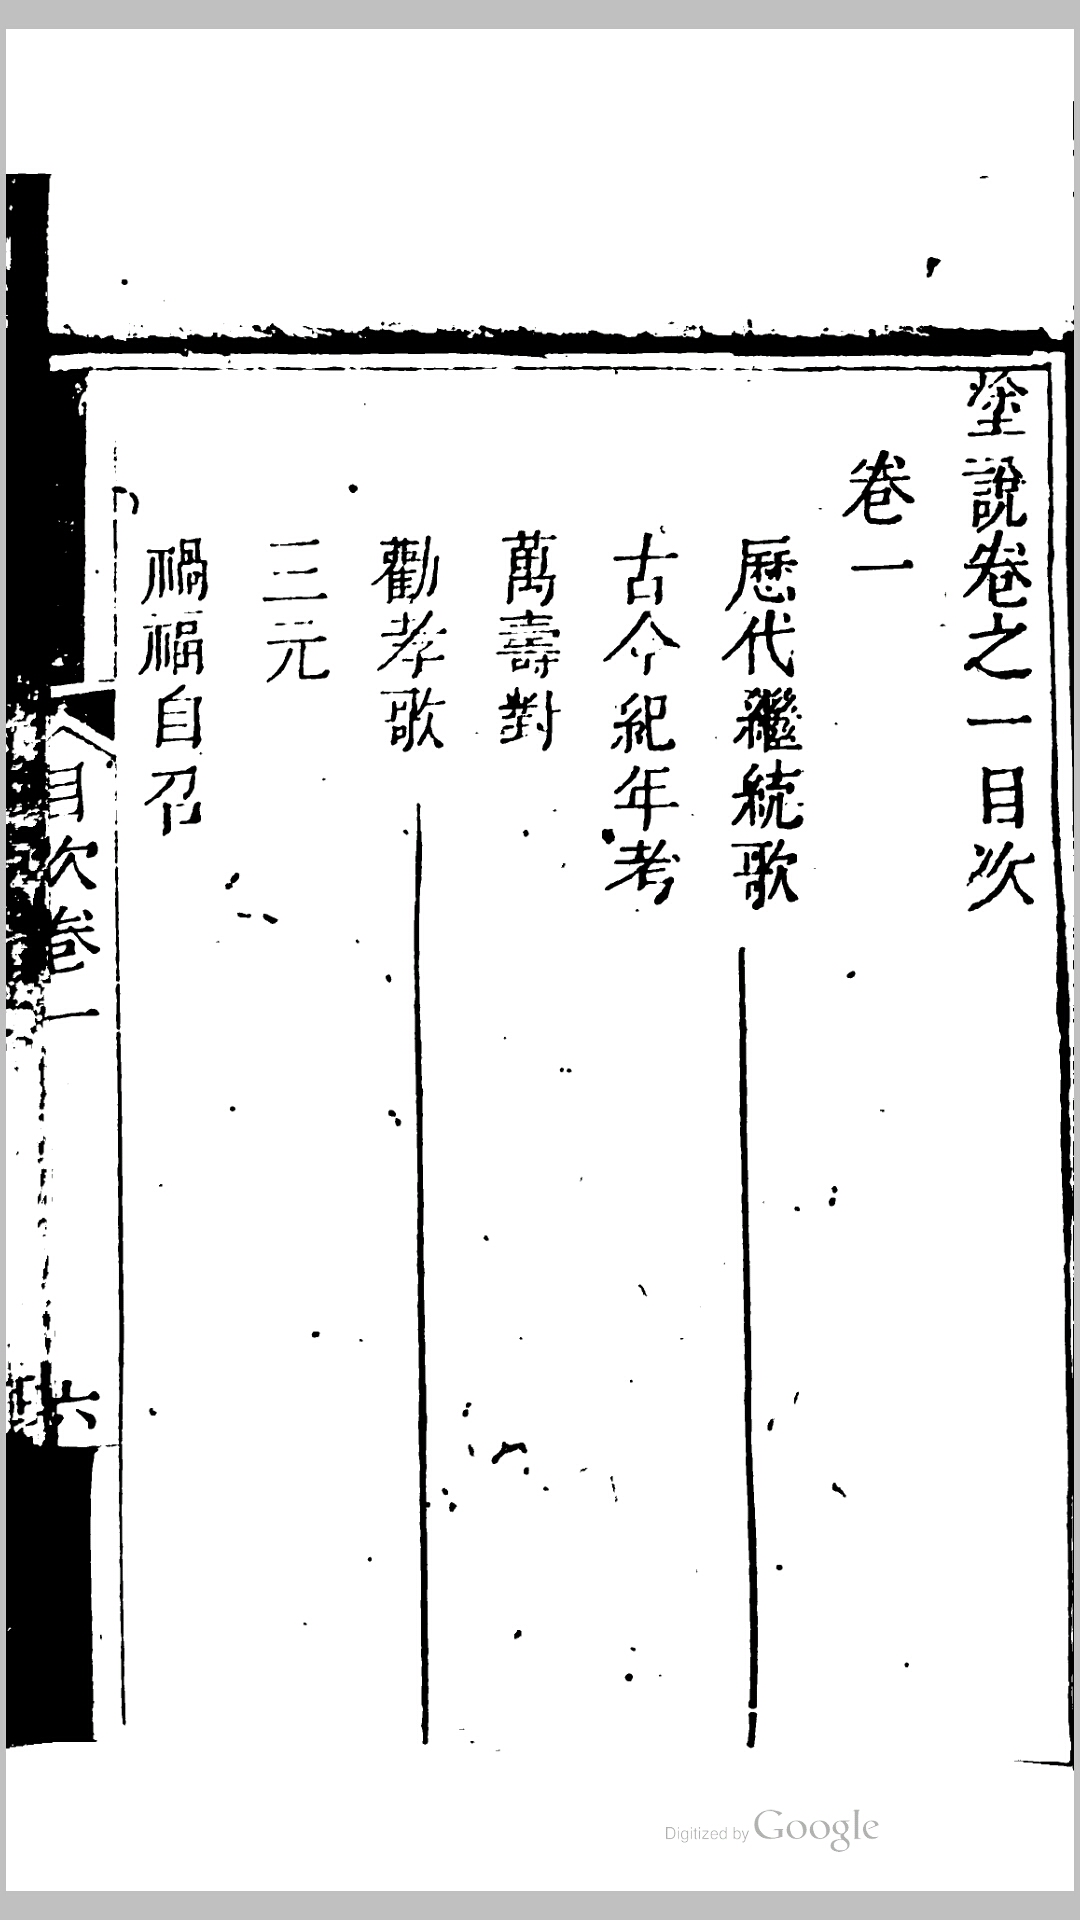 塗說卷之一目次
卷一
歷代繼統歌
古今紀年考
萬壽對
勸孝歌
三元
禍福自召
目次卷一
六
Digitized by Google